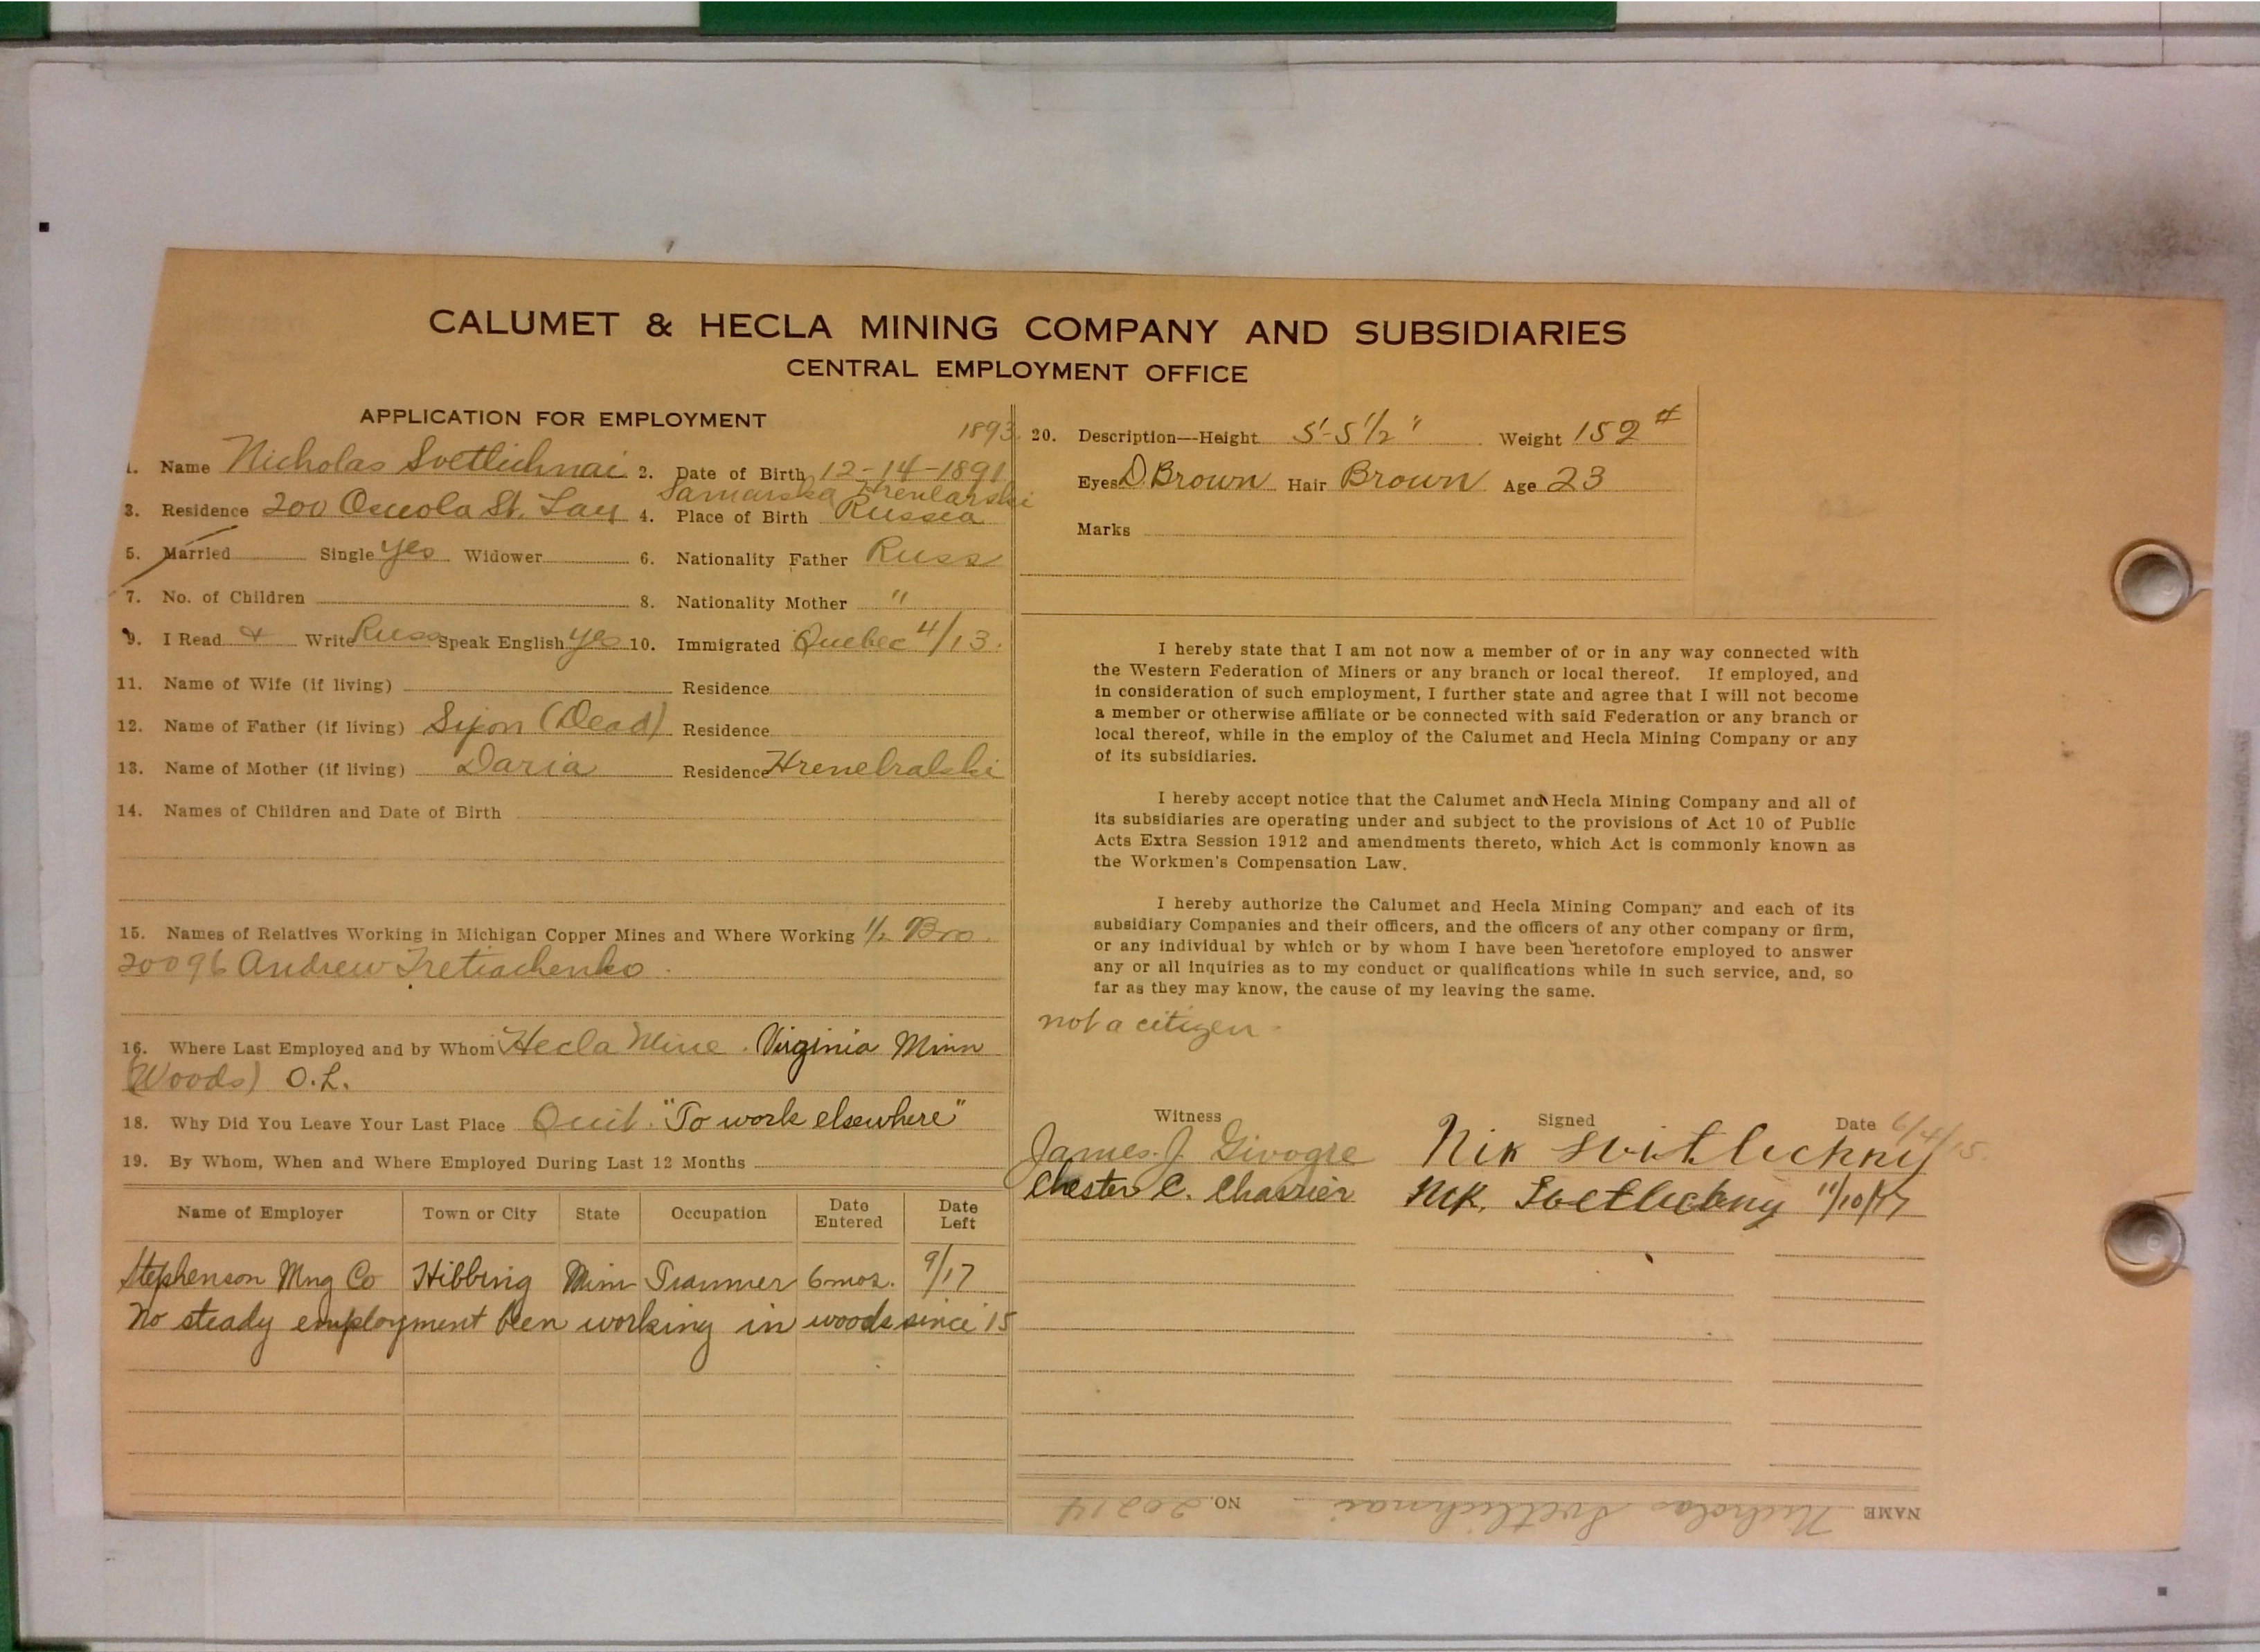 CALUMET & HECLA MINING COMPANY AND SUBSIDIARIES
CENTRAL EMPLOYMENT OFFICE
APPLICATION FOR EMPLOYMENT
1893
1. Name Nicholas Svetlichnai 2. Date of Birth 12-14-1891
Samarska
3. Residence 200 Osceola St. Lau 4. Place of Birth Russia
5. Married Single yes Widower 6. Nationality Father Russ
7. No. of Children 8. Nationality Mother "
9. I Read & Write Russ Speak English yes 10. Immigrated Quebec 4/13.
11. Name of Wife (if living) Residence
12. Name of Father (if living) (Dead) Residence
13. Name of Mother (if living) Daria Residence
14. Names of Children and Date of Birth
15. Names of Relatives Working in Michigan Copper Mines and Where Working 1/2 Bro.
20096 Andrew Tretiachenko.
16. Where Last Employed and by Whom Hecla Mine. Virginia Minn
(Woods) O.L.
18. Why Did You Leave Your Last Place Quit. "To work elsewhere"
19. By Whom, When and Where Employed During Last 12 Months
Name of Employer Town or City State Occupation Date Entered Date Left
Stephenson Mng Co Hibbing Minn Trammer 6 mos. 9/17
No steady employment been working in woods since '15
20. Description—Height 5'-5 1/2" Weight 152 #
Eyes D Brown Hair Brown Age 23
Marks
I hereby state that I am not now a member of or in any way connected with
the Western Federation of Miners or any branch or local thereof. If employed, and
in consideration of such employment, I further state and agree that I will not become
a member or otherwise affiliate or be connected with said Federation or any branch or
local thereof, while in the employ of the Calumet and Hecla Mining Company or any
of its subsidiaries.
I hereby accept notice that the Calumet and Hecla Mining Company and all of
its subsidiaries are operating under and subject to the provisions of Act 10 of Public
Acts Extra Session 1912 and amendments thereto, which Act is commonly known as
the Workmen's Compensation Law.
I hereby authorize the Calumet and Hecla Mining Company and each of its
subsidiary Companies and their officers, and the officers of any other company or firm,
or any individual by which or by whom I have been heretofore employed to answer
any or all inquiries as to my conduct or qualifications while in such service, and, so
far as they may know, the cause of my leaving the same.
not a citizen.
Witness Signed Date 6/4/15.
James. J. Nik Svitlichny
Chester C. Charrier Nik. Svetlichny 11/10/17
NAME Nicholas Svetlichnai NO. 20214